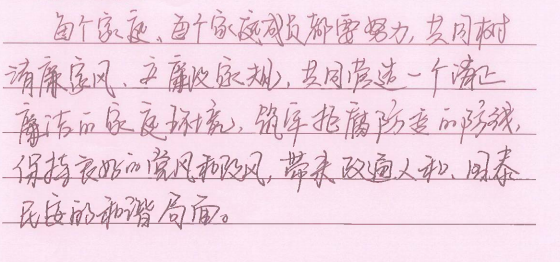 每个家庭、每个家庭成员都要努力,共同树
清廉家风、立廉政家规,共同营造一个清正
廉洁的家庭环境,筑牢拒腐防变的防线,
保持良好的党风和政风,带来政通人和、国泰
民安的和谐局面。